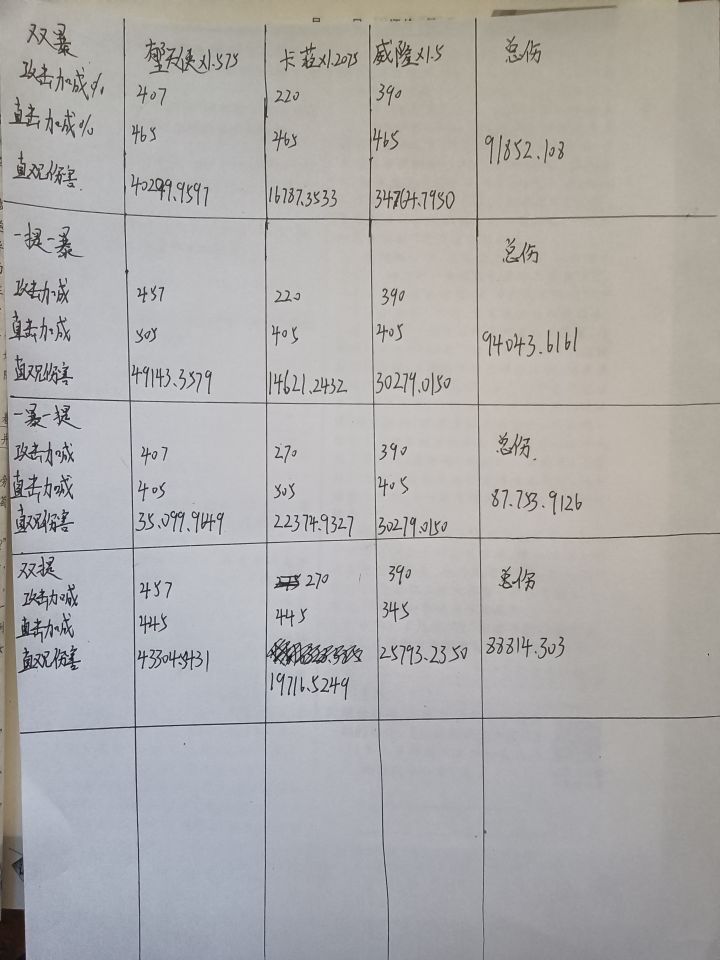 双暴 堕天使x1.575 卡莊x1.2075 威隆x1.5 总伤
攻击加成% 407 220 390
直击加成% 465 465 465 91852.108
直观伤害 40299.9597 16787.3533 34764.7950
一提一暴 总伤
攻击加成 457 220 390
直击加成 505 405 405 94043.6161
直观伤害 49143.3579 14621.2432 30279.0150
一暴一提 总伤
攻击加成 407 270 390
直击加成 405 505 405 87.753.9126
直观伤害 35.099.9649 22374.9327 30279.0150
双提 总伤
攻击加成 457 270 390
直击加成 445 445 345
直观伤害 43304.5431 25793.2350 88814.303
19716.5249